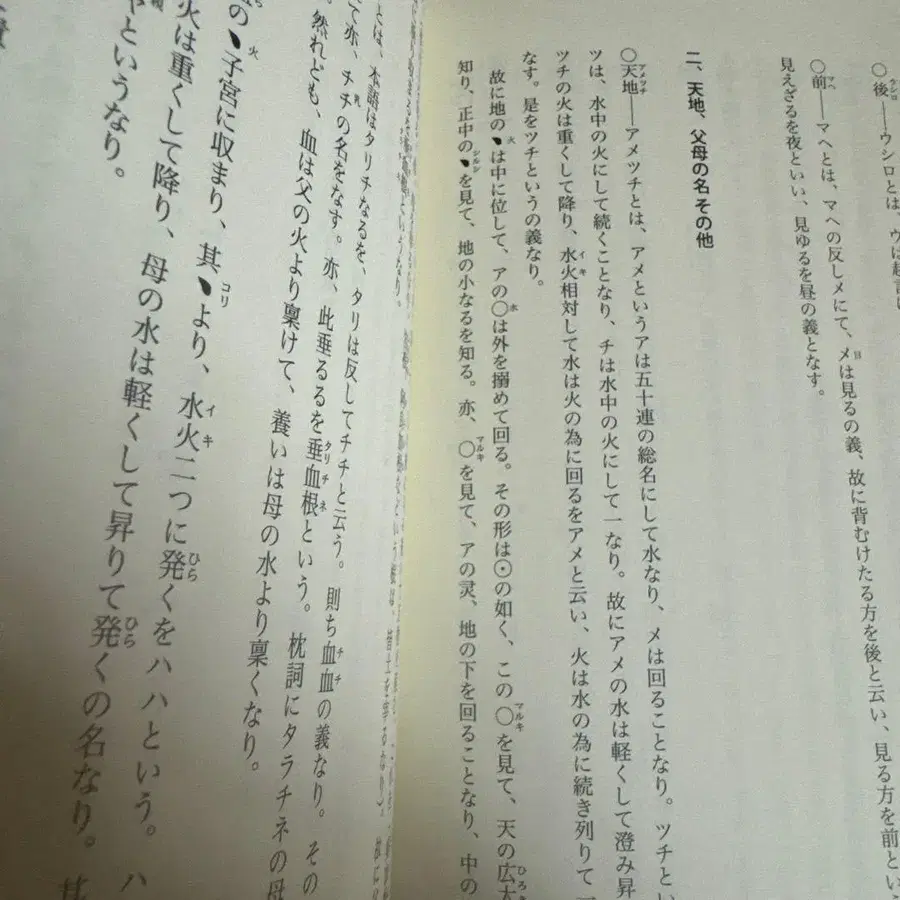 ○後――ウシロとは、ウは起言に
○前――マヘとは、マヘの反しメにて、メは見るの義、故に背むけたる方を後と云い、見る方を前とい
見えざるを夜といい、見ゆるを昼の義となす。
二、天地、父母の名その他
○天地――アメツチとは、アメというアは五十連の総名にして水なり、メは回ることなり。ツチとい
ツは、水中の火にして続くことなり、チは水中の火にして一なり。故にアメの水は軽くして澄み昇
ツチの火は重くして降り、水火相対して水は火の為に回るをアメと云い、火は水の為に続き列りて一
なす。是をツチというの義なり。
故に地の﹅は中に位して、アの○は外を搦めて回る。その形は⊙の如く、この○を見て、天の広大
知り、正中の﹅を見て、地の小なるを知る。亦、○を見て、アの灵、地の下を回ることなり、中の
とは、本語はタリチなるを、タリは反してチチと云う。則ち血血の義なり。その
て亦、チチの名をなす。亦、此垂るるを垂血根という。枕詞にタラチネの母
然れども、血は父の火より稟けて、養いは母の水より稟くなり。
の﹅子宮に収まり、其﹅より、水火二つに発くをハハという。ハ
火は重くして降り、母の水は軽くして昇りて発くの名なり。其
やというなり。